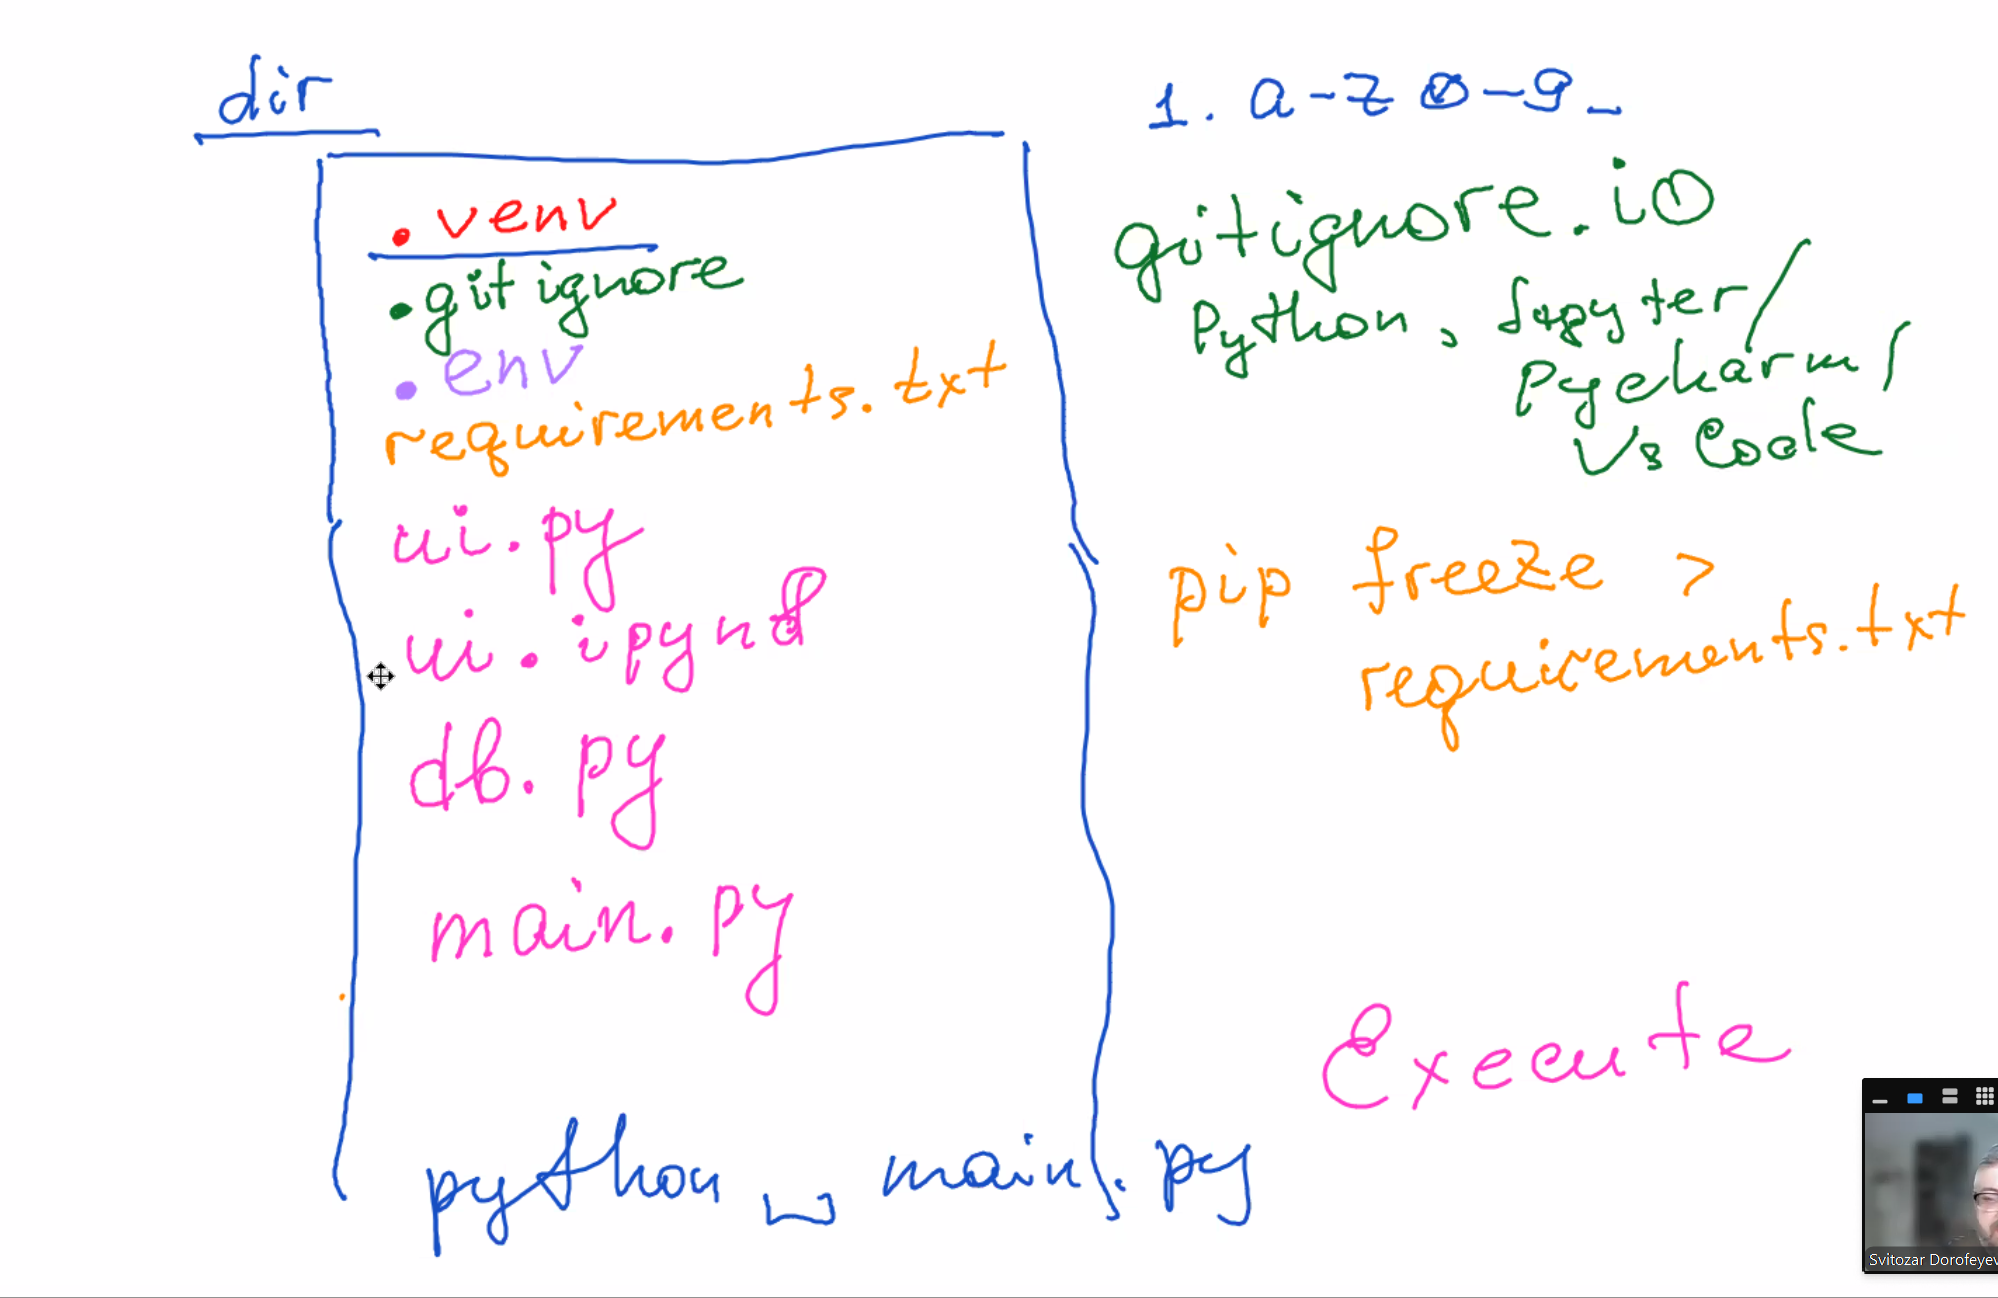 dir
.venv
.gitignore
.env
requirements.txt
ui.py
ui.ipynb
db.py
main.py
python ␣ main.py
1. a-z 0-9_
gitignore.io
Python, Jupyter/
Pycharm/
Vs Code
pip freeze >
requirements.txt
Execute
Svitozar Dorofeyev